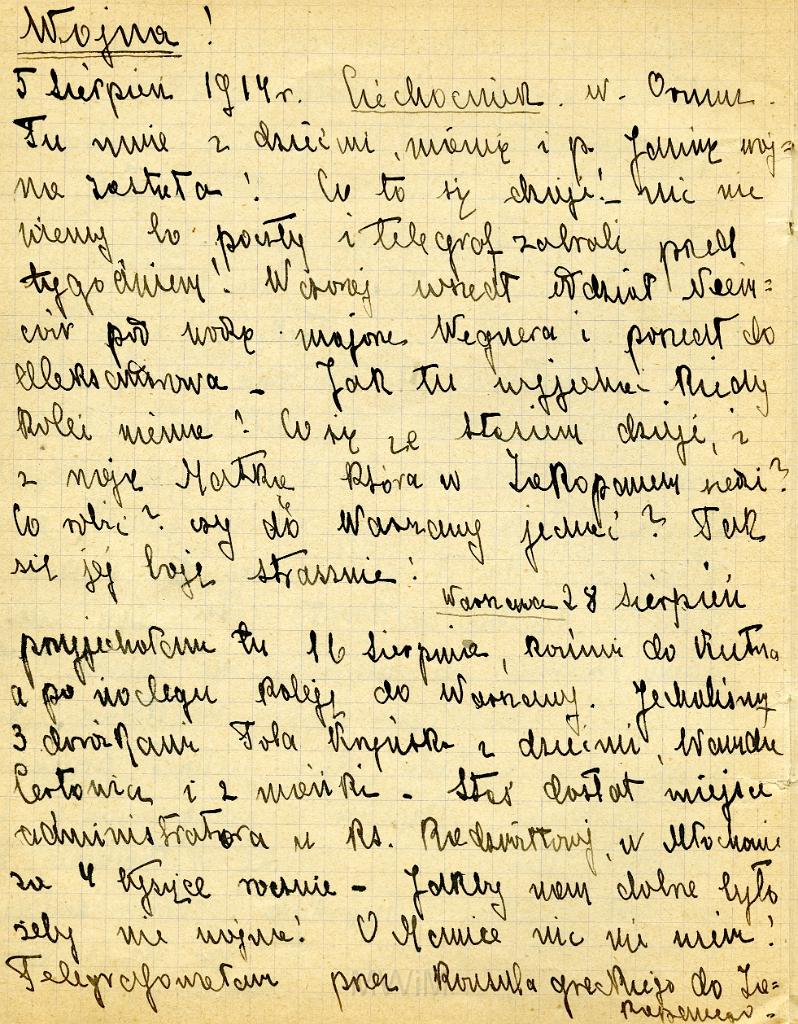 Wojna!
5 Sierpień 1914 r. Ciechocinek. w. Ormuz.
Tu mnie z dziećmi, mamę i p. Janinę woj=
na zastała! Co to się dzieje!– nic nie
wiemy bo poczty i telegraf zabrali przed
tygodniem! Wczoraj wszedł oddział Niem=
ców pod wodzą majora Wegnera i poszedł do
Aleksandrowa – Jak tu wyjechać kiedy
kolei niema? Co się ze Stasiem dzieje, i
z moją Matką która w Zakopanem siedzi?
Co robić? czy do Warszawy jechać? Tak
się jej boję strasznie!
Warszawa 28 Sierpień
przyjechałam tu 16 Sierpnia, końmi do Kutna
a po noclegu koleją do Warszawy. Jechaliśmy
3 dorożkami Tola z dziećmi, Wandzia
i 2 – Staś dostał miejsce
administratora u Ks. Radziwiłłowej, w
za 4 tysiące rocznie – Jakby nam dobrze było
żeby nie wojna! O Mamie nic nie wiem!
Telegrafowałam przez Konsula greckiego do Za=
kopanego –